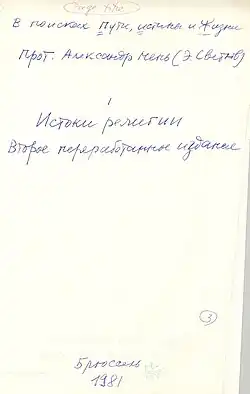 В поисках Пути, истины и Жизни
прот. Александр Мень (Э. Светлов)
1
Истоки религии
Второе переработанное издание
3
Брюссель
1981